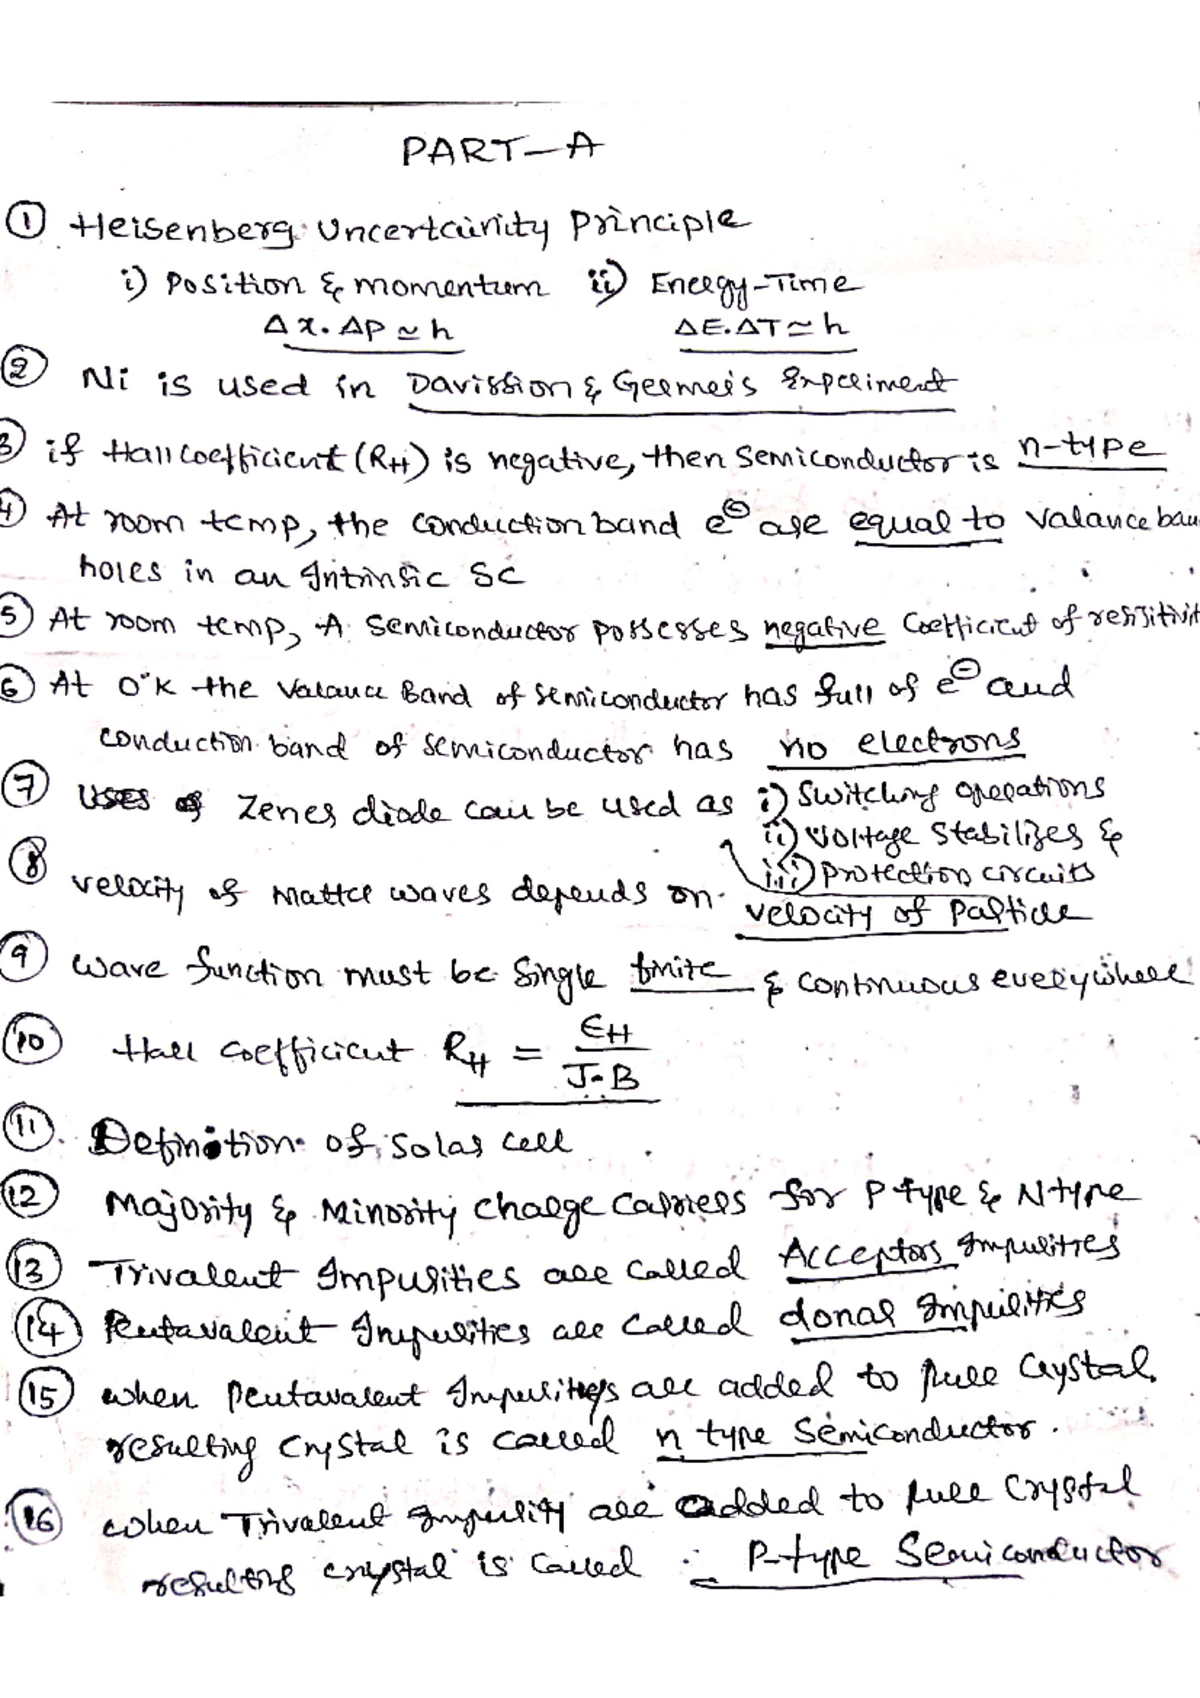 PART-A
① Heisenberg Uncertainity Principle
i) Position & momentum ii) Energy-Time
Δx.ΔP ≃ h ΔE.ΔT ≃ h
② Ni is used in Davission & Germer's Experiment
3 if Hall coefficient (RH) is negative, then Semiconductor is n-type
4 At room temp, the conduction band e⊖ are equal to Valance ban
holes in an Intrinsic SC
5 At room temp, A Semiconductor possesses negative Coefficient of resistivit
6 At 0°K the Valance Band of semiconductor has full of e⊖ and
conduction band of semiconductor has no electrons
⑦ Zener diode can be used as i) Switching operations
ii) Voltage Stabilizer &
iii) Protection circuits
⑧ velocity of matter waves depends on velocity of Particle
9 wave function must be single finite & continuous everywhere
⑩ Hall coefficient RH = EH / J-B
⑪. Definition of Solar cell
⑫ Majority & Minority charge carriers for P type & N type
⑬ Trivalent Impurities are called Acceptors Impurities
⑭ Pentavalent Impurities are called donar Impurities
⑮ when Pentavalent Impurities are added to pure Crystal
resulting Crystal is called n type Semiconductor.
⑯ when Trivalent Impurity are added to pure Crystal
resulting crystal is called P-type Semiconductor